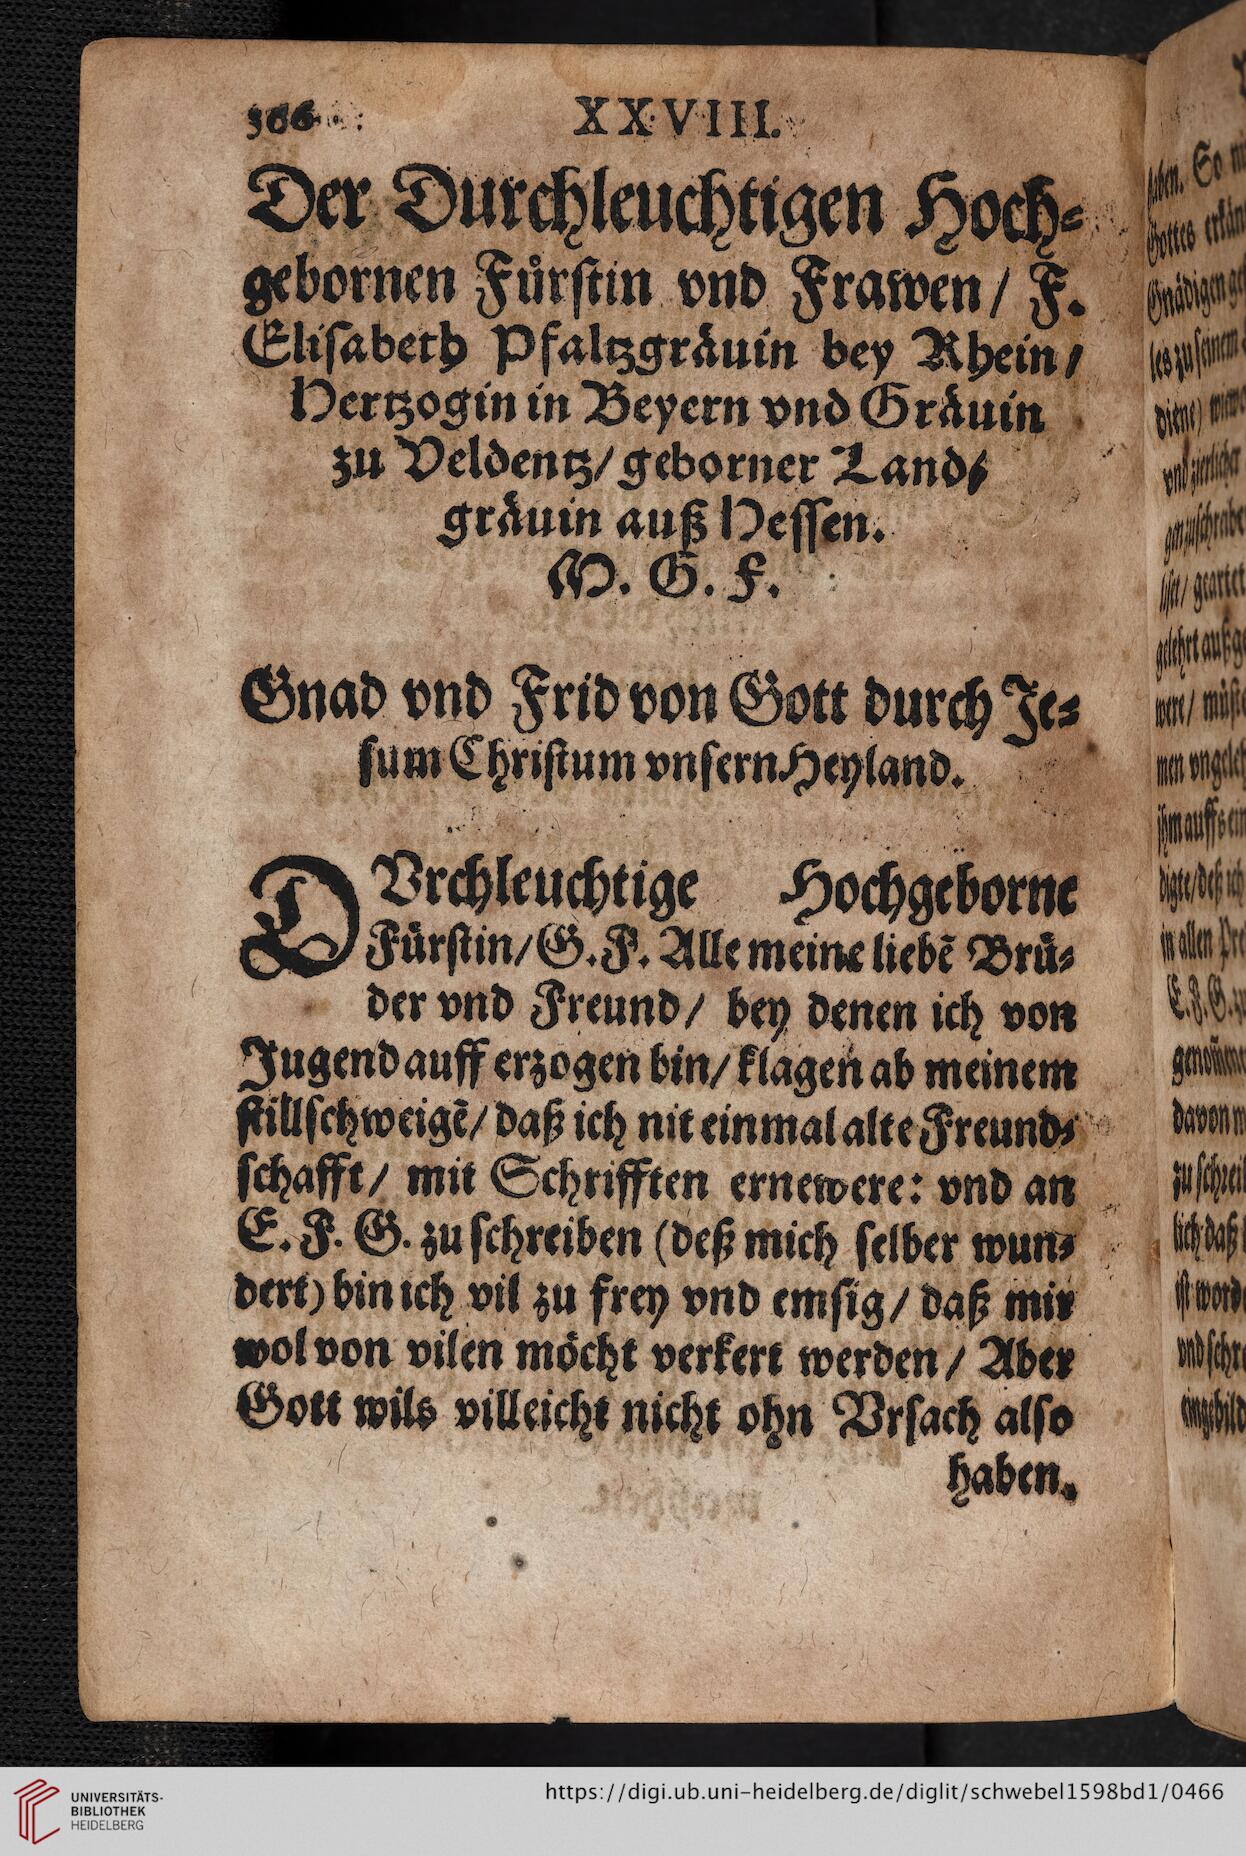 366
XXVIII.
Der Durchleuchtigen Hoch⸗
gebornen Fuͤrstin vnd Frawen/ F.
Elisabeth Pfaltzgraͤuin bey Rhein/
Hertzogin in Beyern vnd Graͤuin
zu Veldentz/ geborner Land⸗
graͤuin auß Hessen.
M. G. F.
Gnad vnd Frid von Gott durch Je⸗
sum Christum vnsern Heyland.
DVrchleuchtige Hochgeborne
Fuͤrstin/ G. F. Alle meine liebē Bruͤ⸗
der vnd Freund/ bey denen ich von
Jugend auff erzogen bin/ klagen ab meinem
stillschweigē/ daß ich nit einmal alte Freund⸗
schafft/ mit Schrifften ernewere: vnd an
E. F. G. zu schreiben (deß mich selber wun⸗
dert) bin ich vil zu frey vnd emsig/ daß mir
wol von vilen moͤcht verkert werden/ Aber
Gott wils villeicht nicht ohn Vrsach also
haben.
haben. So
Gottes
Gnädigen
les zu seinem
diene)
vnd zierlicher
geartet
gelehrt auß
were/
men
ihm auffs
digte/ deß ich
in allen
E. F. G.
davon
zu
lich daß
ist
vnd
UNIVERSITÄTS-
BIBLIOTHEK
HEIDELBERG
https://digi.ub.uni-heidelberg.de/diglit/schwebel1598bd1/0466